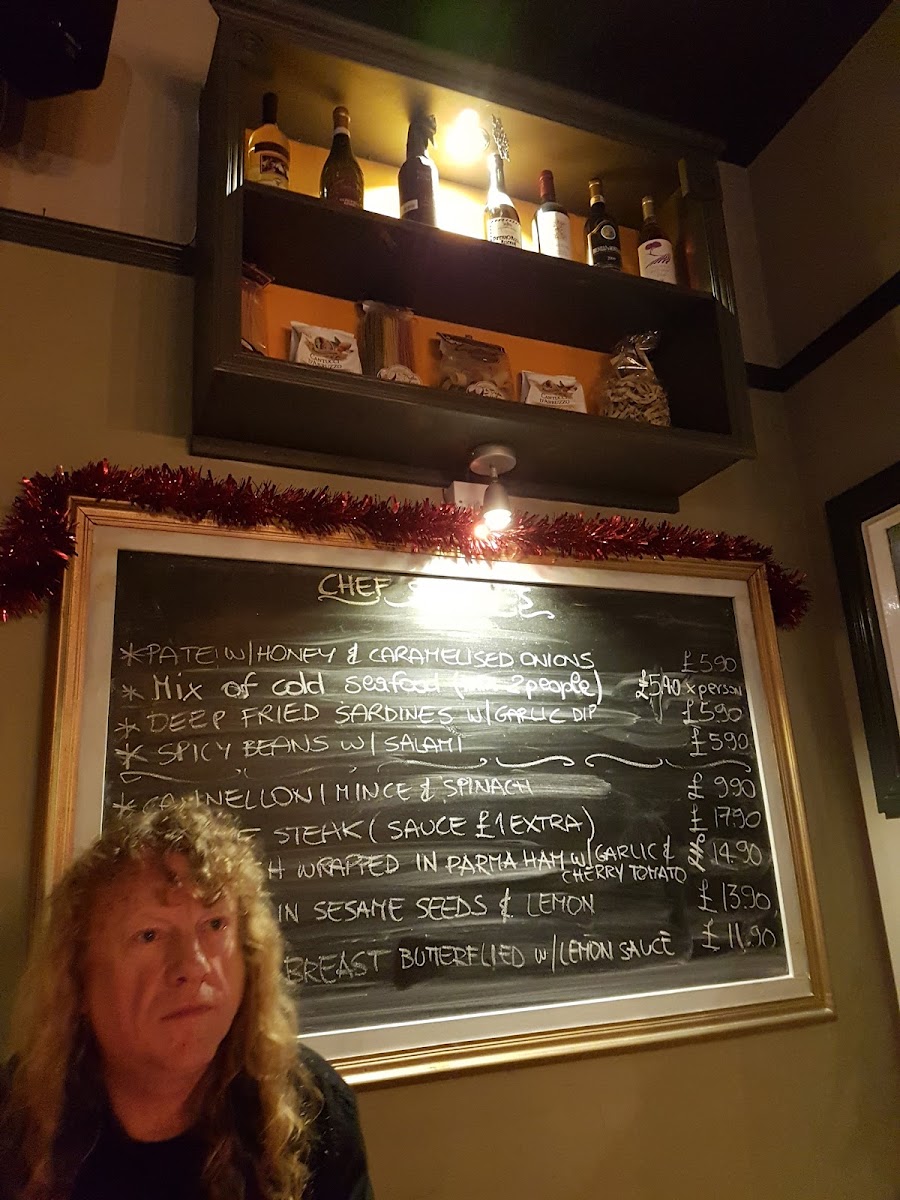 CANTUCCI
D'ABRUZZO
CANTUCCI
D'ABRUZZO
CHEF
*PATE W/HONEY & CARAMELISED ONIONS £5.90
* Mix of cold seafood ( 2people) £5,90 x person
* DEEP FRIED SARDINES W/GARLIC DIP £5.90
* SPICY BEANS W/ SALAMI £5.90
* CANNELLONI MINCE & SPINACH £ 9.90
STEAK (SAUCE £1 EXTRA) £ 17.90
WRAPPED IN PARMA HAM W/GARLIC & 14.90
CHERRY TOMATO
IN SESAME SEEDS & LEMON £ 13.90
BREAST BUTTERFLIED W/LEMON SAUCE £ 11.90